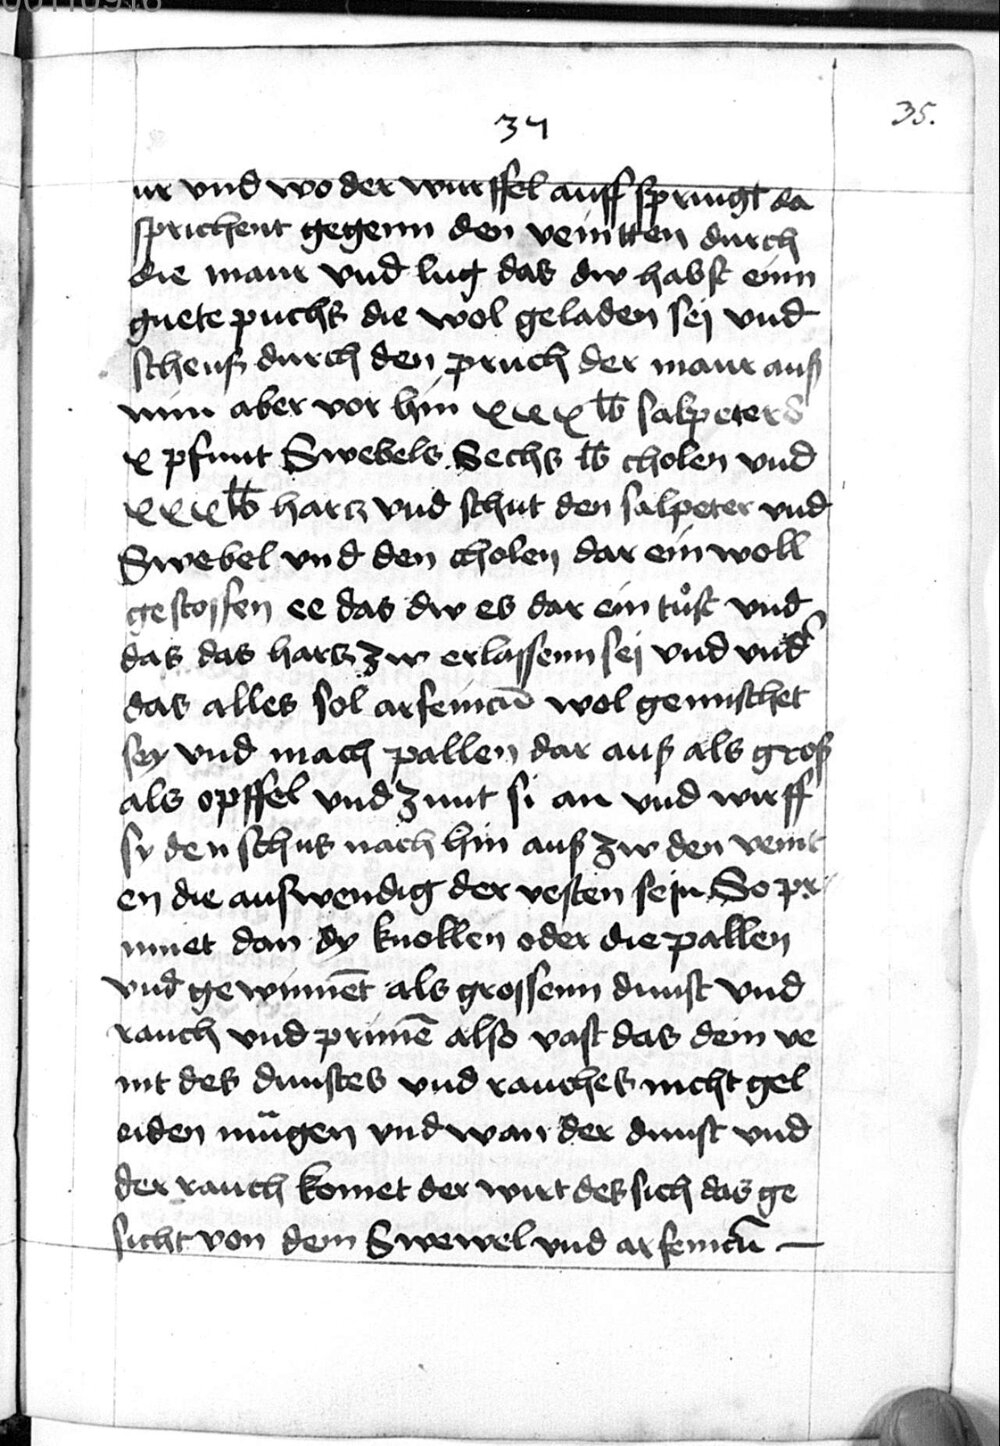 00110916
37
35.
ur vnd wo der wurffel auff springt da
sprichent gegenn den veintten durch
die maur vnd lug das dw habst einn
guete puchs die wol geladen sej vnd
scheuß durch den pruch der maur auß
nim aber vor hin xxx lb salpeters
x pfunt Swebels Sechs lb cholen vnd
xxx lb harcz vnd schut den salpeter vnd
Swebel vnd den cholen dar ein woll
gestossen ee das dw es dar ein tůst vnd
das das harcz zw erlassenn sej vnd vnd
das alles sol arsenicū wol gemischet
sey vnd mach pallen dar auß als groß
als opffel vnd zunt si an vnd wirff
sy den schus nach hin auß zw den veint
en die auswendig der vesten sein So pr
innet dan dy knollen oder die pallen
vnd gewinnēt als grossenn dunst vnd
rauch vnd prinnē also vast das dem ve
int des dunstes vnd rauches nicht gel
eiden mügen vnd wan der dunst vnd
der rauch komet der wirt des sich das ge
sicht von dem Swewel vnd arsenicū —